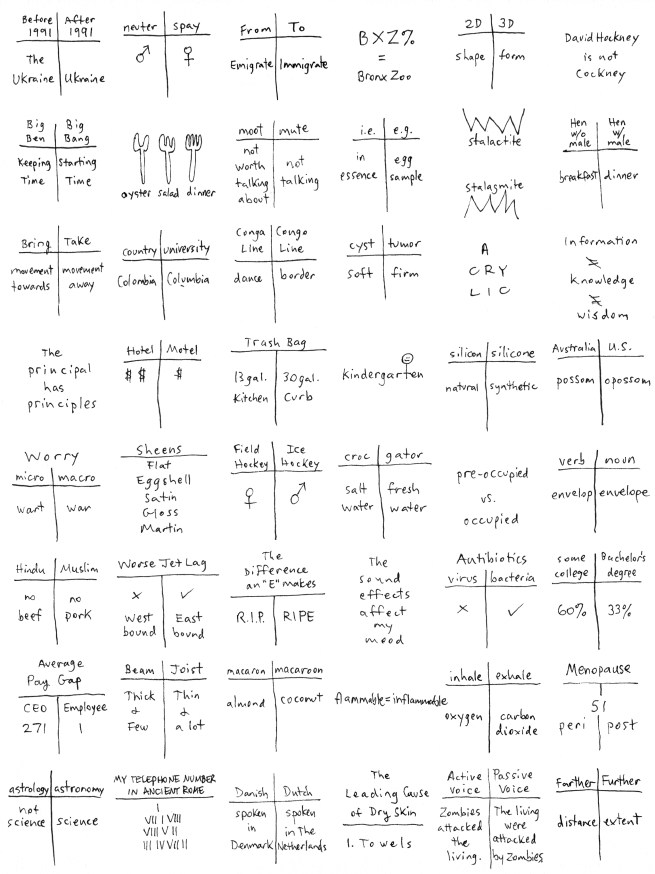 Before 1991 After 1991
The Ukraine Ukraine
neuter spay
♂ ♀
From To
Emigrate Immigrate
B X Z%
=
Bronx Zoo
2D 3D
shape form
David Hockney
is not
Cockney
Big Ben Big Bang
Keeping Time Starting Time
oyster salad dinner
moot mute
not worth talking about not talking
i.e. e.g.
in essence egg sample
stalactite
stalagmite
Hen w/o male Hen w/ male
breakfast dinner
Bring Take
movement towards movement away
country university
Colombia Columbia
Conga Line Congo Line
dance border
cyst tumor
soft firm
A
CRY
LIC
Information
≠
Knowledge
≠
wisdom
The
principal
has
principles
Hotel Motel
$ $ $
Trash Bag
13 gal. Kitchen 30 gal. Curb
Kindergarten
silicon silicone
natural synthetic
Australia U.S.
possom opossom
Worry
micro macro
wart war
Sheens
Flat
Eggshell
Satin
Gloss
Martin
Field Hockey Ice Hockey
♀ ♂
croc gator
salt water fresh water
pre-occupied
vs.
occupied
verb noun
envelop envelope
Hindu Muslim
no beef no pork
Worse Jet Lag
x ✓
West bound East bound
The
Difference
an "E" makes
R.I.P. RIPE
The
sound
effects
affect
my
mood
Antibiotics
virus bacteria
x ✓
some college Bachelor's degree
60% 33%
Average
Pay Gap
CEO Employee
271 1
Beam Joist
Thick & Few Thin & a lot
macaron macaroon
almond coconut
flammable=inflammable
inhale exhale
oxygen carbon dioxide
Menopause
51
peri post
astrology astronomy
not science science
MY TELEPHONE NUMBER
IN ANCIENT ROME
Danish Dutch
spoken in Denmark spoken in The Netherlands
The
Leading Cause
of Dry Skin
1. Towels
Active Voice Passive Voice
Zombies attacked the living. The living were attacked by Zombies
Farther Further
distance extent